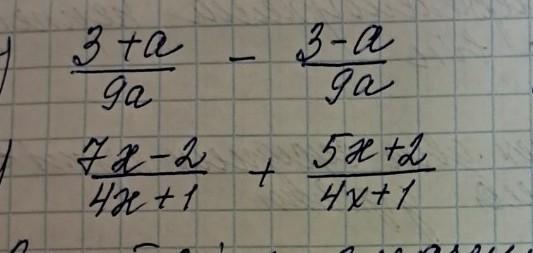 ) (3+a)/(9a) - (3-a)/(9a)
) (7x-2)/(4x+1) + (5x+2)/(4x+1)